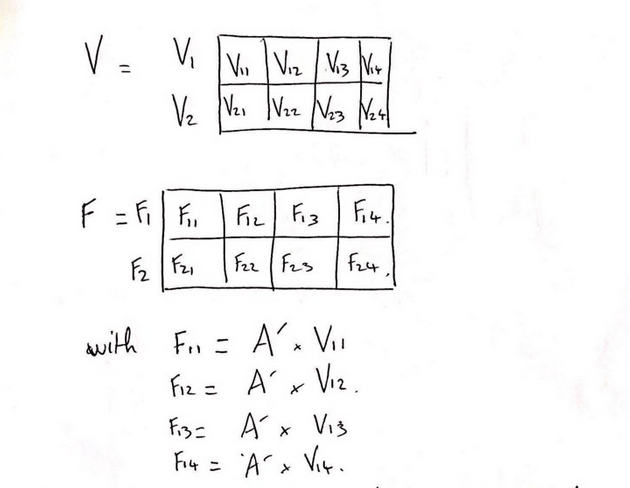 V = V₁ V₁₁ V₁₂ V₁₃ V₁₄
V₂ V₂₁ V₂₂ V₂₃ V₂₄
F = F₁ F₁₁ F₁₂ F₁₃ F₁₄.
F₂ F₂₁ F₂₂ F₂₃ F₂₄.
with F₁₁ = A′ × V₁₁
F₁₂ = A′ × V₁₂.
F₁₃ = A′ × V₁₃
F₁₄ = A′ × V₁₄.